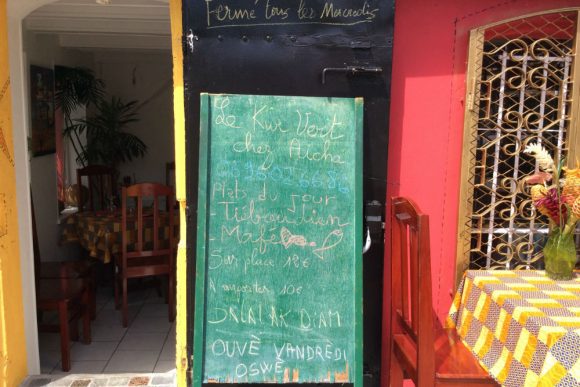 Fermé tous les Mercredis
Le Kur Vert
chez Aicha
Plats du Jour
- Tiébou dien
- Mafé
Sur place 12€
A emporter 10€
SALAI AK DIAM
OUVÈ VANDRÈDI
OSWÈ